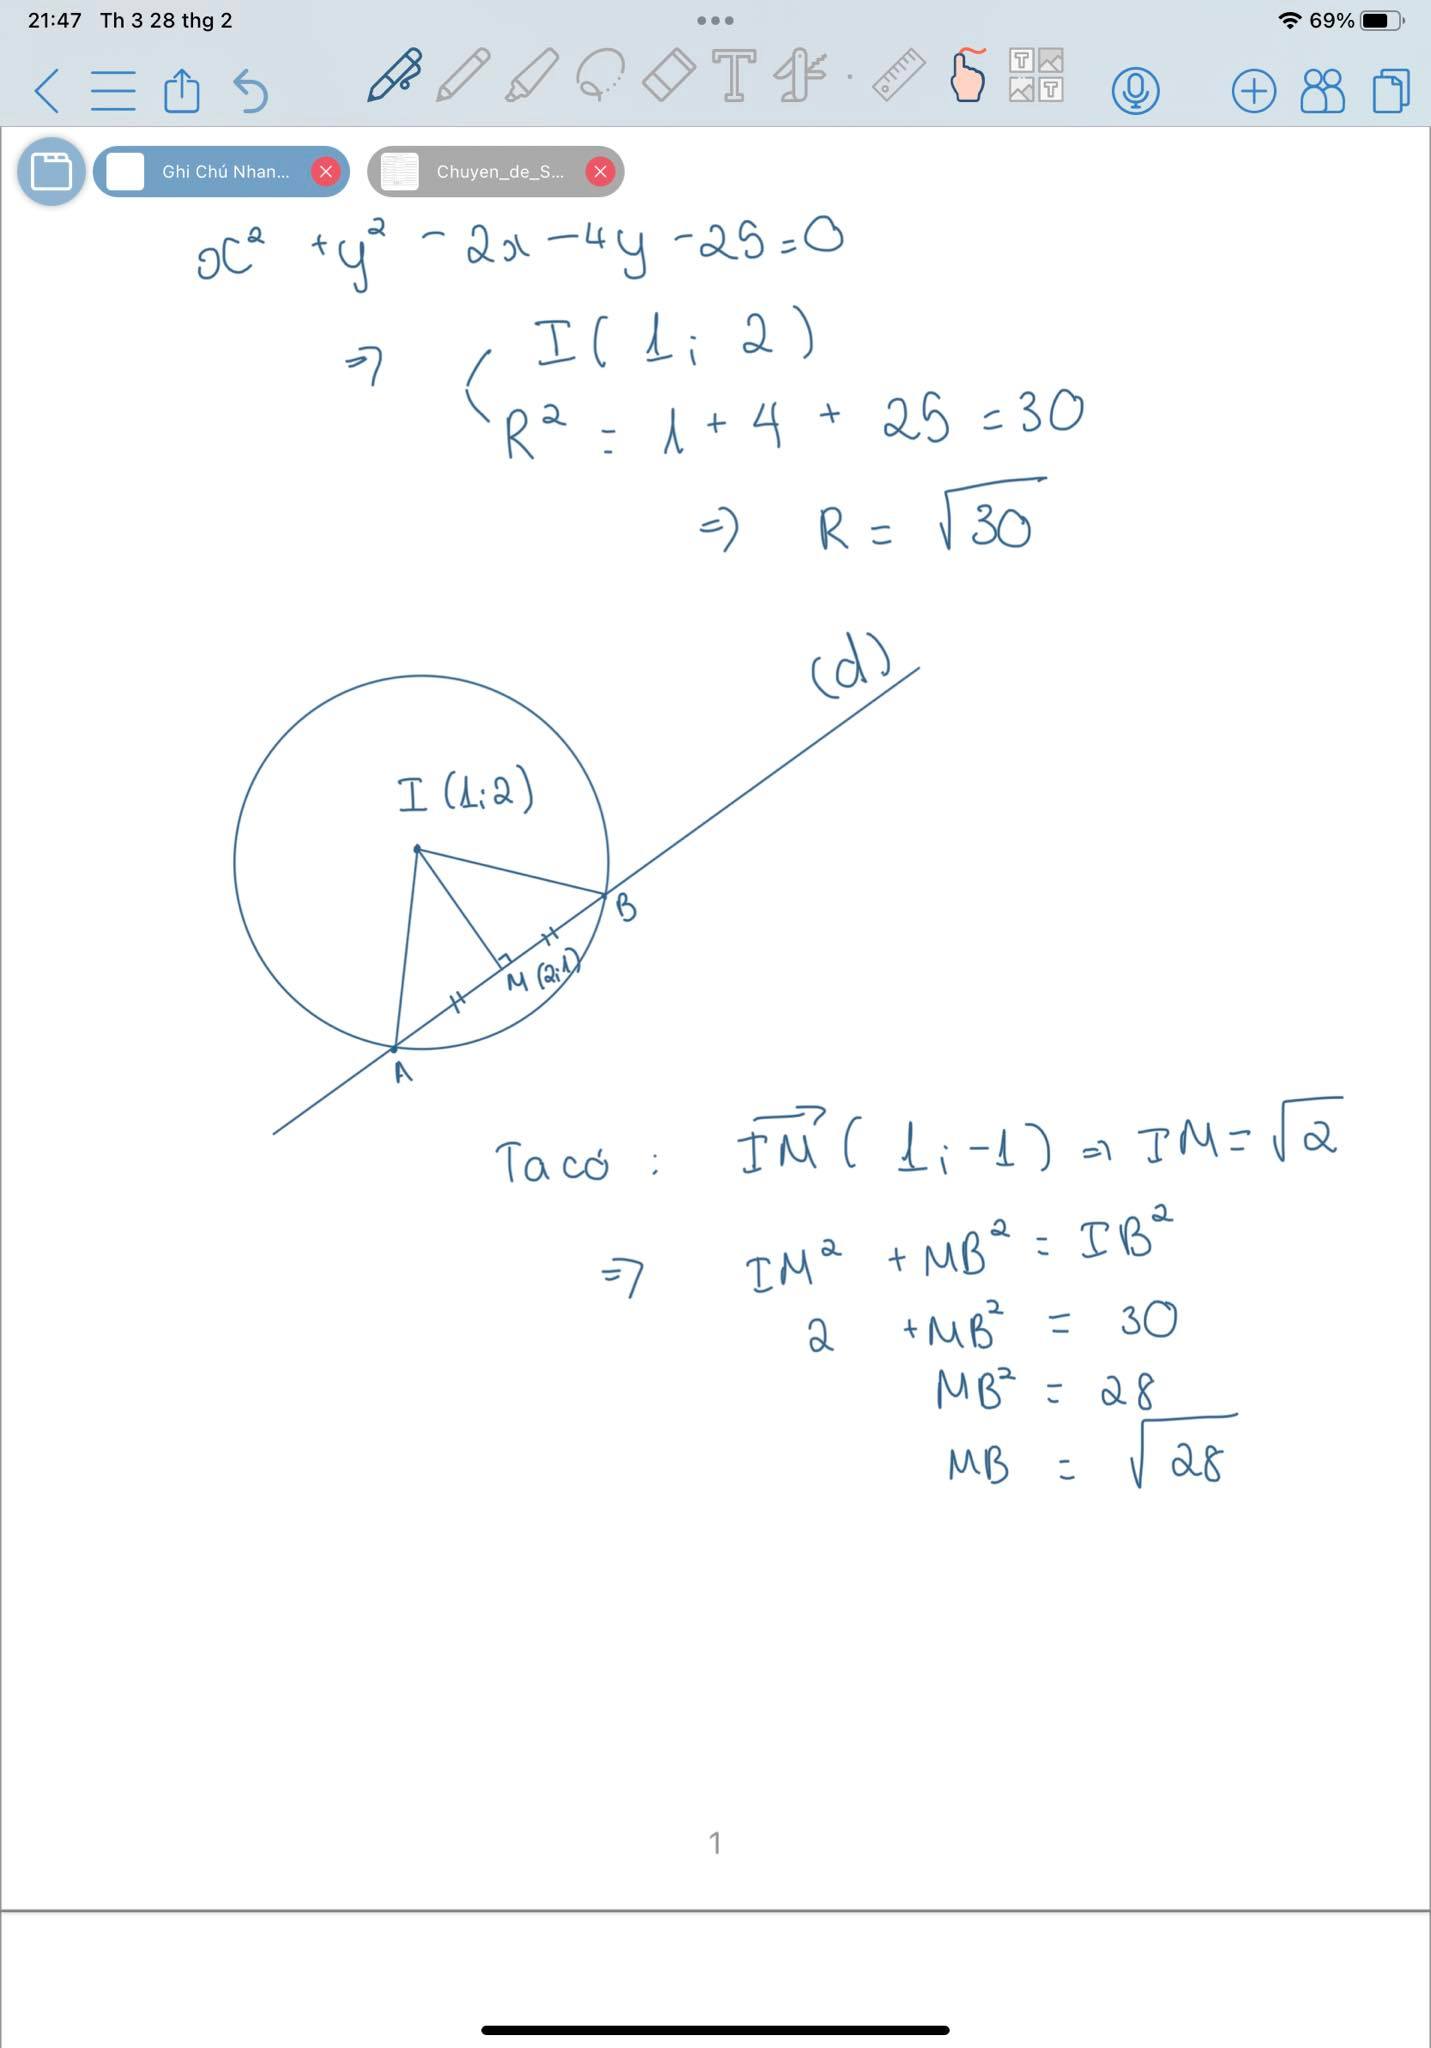 21:47 Th 3 28 thg 2
69%
Ghi Chú Nhan...
Chuyen_de_S...
x² + y² - 2x - 4y - 25 = 0
⇒ ( I( 1; 2 )
R² = 1 + 4 + 25 = 30
⇒ R = √30
(d)
I (1;2)
B
M (2;1)
A
Ta có : IM→ ( 1; -1 ) ⇒ IM = √2
⇒ IM² + MB² = IB²
2 + MB² = 30
MB² = 28
MB = √28
1